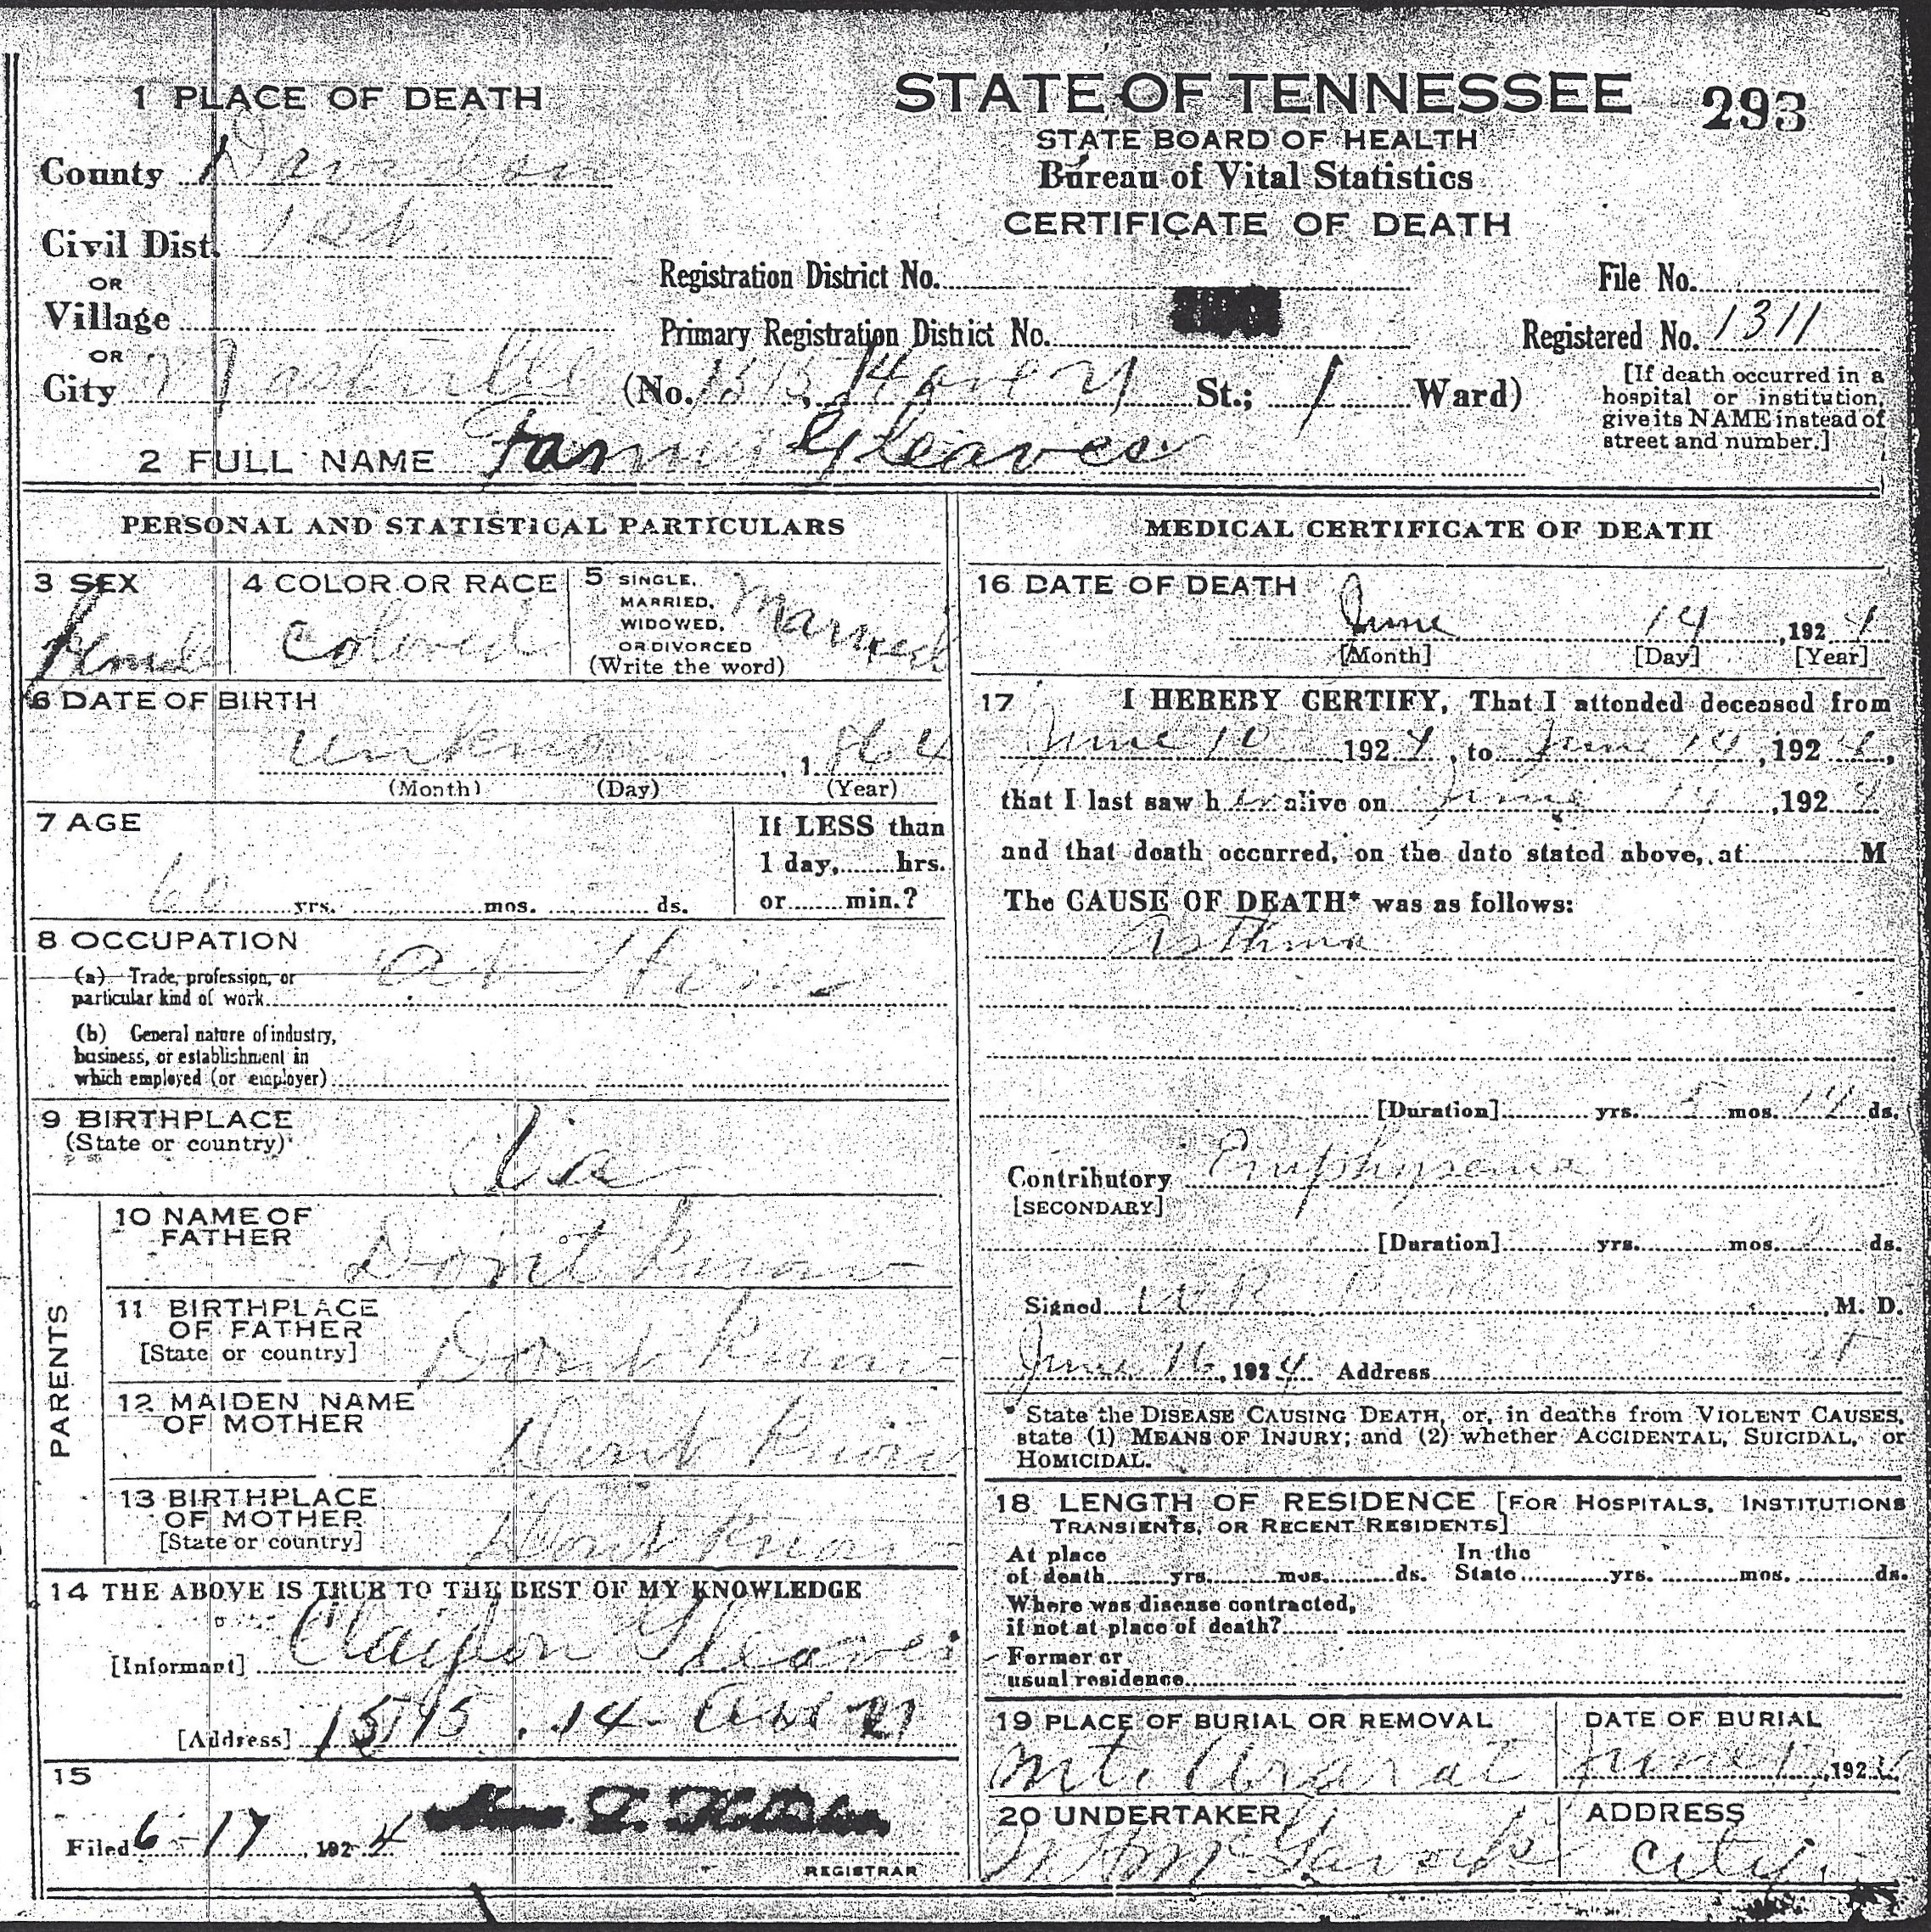 1 PLACE OF DEATH
STATE OF TENNESSEE 293
STATE BOARD OF HEALTH
Bureau of Vital Statistics
CERTIFICATE OF DEATH
County Davidson
Civil Dist. 1st.
OR
Village
OR
City Nashville (No. St.; 1 Ward)
Registration District No.
File No.
Primary Registration District No.
Registered No. 1311
[If death occurred in a
hospital or institution,
give its NAME instead of
street and number.]
2 FULL NAME Fanny Gleaves
PERSONAL AND STATISTICAL PARTICULARS
3 SEX Female
4 COLOR OR RACE Colored
5 SINGLE,
MARRIED,
WIDOWED,
OR DIVORCED
(Write the word) Married
6 DATE OF BIRTH
unknown, 1864
(Month) (Day) (Year)
7 AGE
60 yrs. mos. ds.
If LESS than
1 day, hrs.
or min.?
8 OCCUPATION
(a) Trade, profession, or
particular kind of work at Home
(b) General nature of industry,
business, or establishment in
which employed (or employer)
9 BIRTHPLACE
(State or country) Va
PARENTS
10 NAME OF
FATHER Don't know
11 BIRTHPLACE
OF FATHER
[State or country] Dont know
12 MAIDEN NAME
OF MOTHER Dont know
13 BIRTHPLACE
OF MOTHER
[State or country] Dont know
14 THE ABOVE IS TRUE TO THE BEST OF MY KNOWLEDGE
[Informant] Clayton Gleaves
[Address] 1515. 14 - Ave n
15
Filed 6-17, 1924
REGISTRAR
MEDICAL CERTIFICATE OF DEATH
16 DATE OF DEATH
June 14, 1924
[Month] [Day] [Year]
17 I HEREBY CERTIFY, That I attended deceased from
June 10 1924, to June 14, 1924,
that I last saw her alive on June 14, 1924
and that death occurred, on the date stated above, at M
The CAUSE OF DEATH* was as follows:
Asthma
[Duration] yrs. 5 mos. 14 ds.
Contributory Emphysema
[SECONDARY]
[Duration] yrs. mos. ds.
Signed , M. D.
June 16, 1924 Address
* State the DISEASE CAUSING DEATH, or, in deaths from VIOLENT CAUSES,
state (1) MEANS OF INJURY; and (2) whether ACCIDENTAL, SUICIDAL, or
HOMICIDAL.
18 LENGTH OF RESIDENCE [FOR HOSPITALS, INSTITUTIONS
TRANSIENTS, OR RECENT RESIDENTS]
At place
of death yrs. mos. ds. In the
State yrs. mos. ds.
Where was disease contracted,
if not at place of death?
Former or
usual residence
19 PLACE OF BURIAL OR REMOVAL
Mt. Ararat
DATE OF BURIAL
June , 1924
20 UNDERTAKER
McGavock
ADDRESS
City.